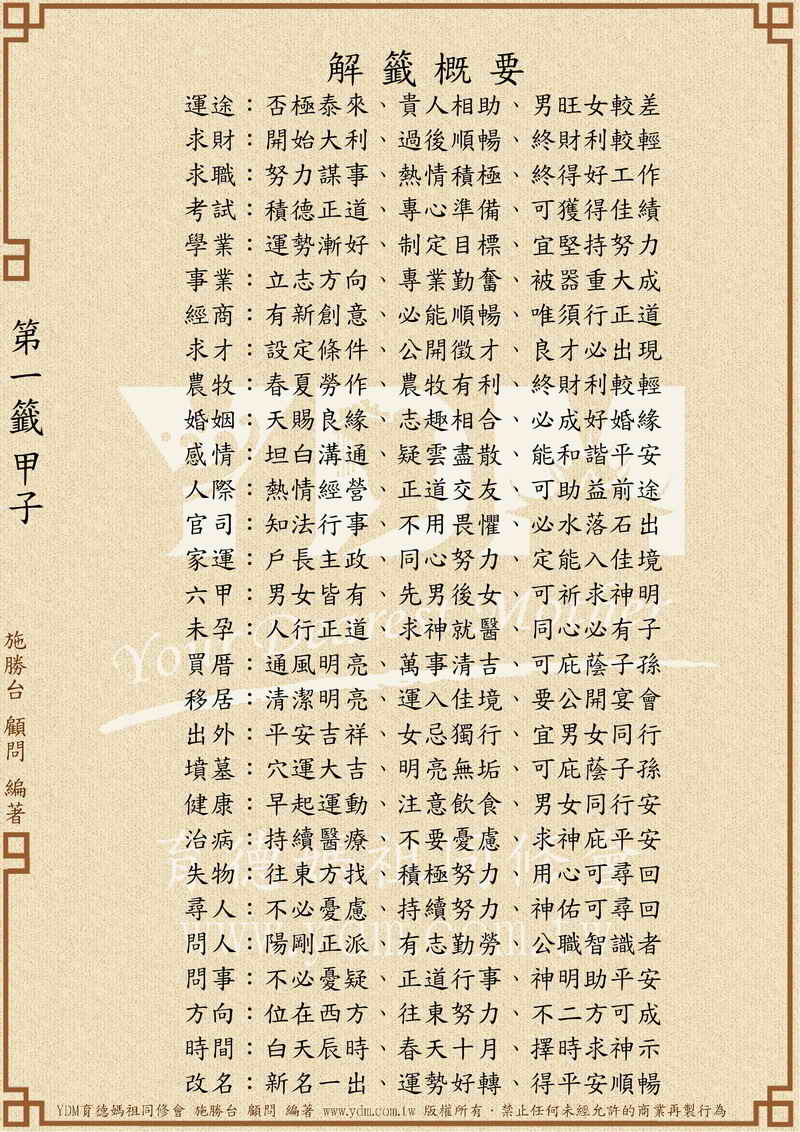 解籤概要
運途：否極泰來、貴人相助、男旺女較差
求財：開始大利、過後順暢、終財利較輕
求職：努力謀事、熱情積極、終得好工作
考試：積德正道、專心準備、可獲得佳績
學業：運勢漸好、制定目標、宜堅持努力
事業：立志方向、專業勤奮、被器重大成
經商：有新創意、必能順暢、唯須行正道
求才：設定條件、公開徵才、良才必出現
農牧：春夏勞作、農牧有利、終財利較輕
婚姻：天賜良緣、志趣相合、必成好婚緣
感情：坦白溝通、疑雲盡散、能和諧平安
人際：熱情經營、正道交友、可助益前途
官司：知法行事、不用畏懼、必水落石出
家運：戶長主政、同心努力、定能入佳境
六甲：男女皆有、先男後女、可祈求神明
未孕：人行正道、求神就醫、同心必有子
買厝：通風明亮、萬事清吉、可庇蔭子孫
移居：清潔明亮、運入佳境、要公開宴會
出外：平安吉祥、女忌獨行、宜男女同行
墳墓：穴運大吉、明亮無垢、可庇蔭子孫
健康：早起運動、注意飲食、男女同行安
治病：持續醫療、不要憂慮、求神庇平安
失物：往東方找、積極努力、用心可尋回
尋人：不必憂慮、持續努力、神佑可尋回
問人：陽剛正派、有志勤勞、公職智識者
問事：不必憂疑、正道行事、神明助平安
方向：位在西方、往東努力、不二方可成
時間：白天辰時、春天十月、擇時求神示
改名：新名一出、運勢好轉、得平安順暢
第一籤甲子
施勝台 顧問 編著
YDM
Your Dearest Mother
育德媽祖同修會
www.ydm.com.tw
YDM育德媽祖同修會 施勝台 顧問 編著 www.ydm.com.tw 版權所有．禁止任何未經允許的商業再製行為